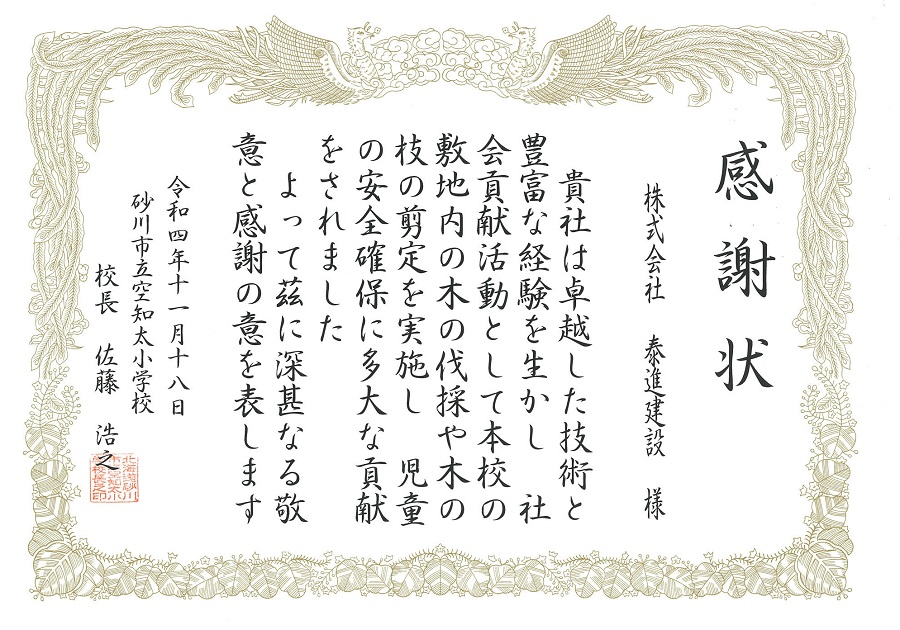 感謝状
株式会社 泰進建設 様
貴社は卓越した技術と
豊富な経験を生かし 社
会貢献活動として本校の
敷地内の木の伐採や木の
枝の剪定を実施し 児童
の安全確保に多大な貢献
をされました
よって茲に深甚なる敬
意と感謝の意を表します
令和四年十一月十八日
砂川市立空知太小学校
校長 佐藤 浩之